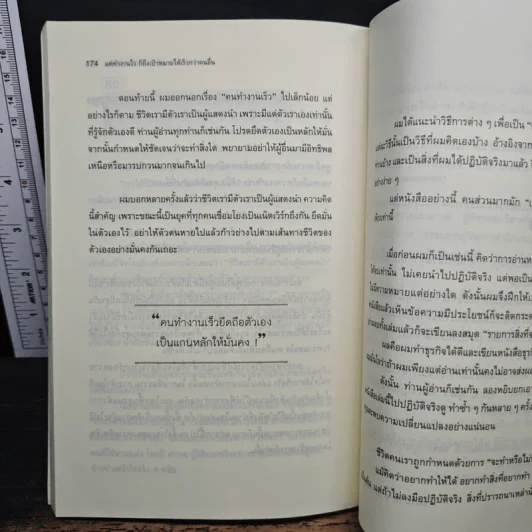 174 แค่ทำงานไว ก็ถึงเป้าหมายได้เร็วกว่าคนอื่น
ตอนท้ายนี้ ผมออกนอกเรื่อง “คนทำงานเร็ว” ไปเล็กน้อย แต่
อย่างไรก็ตาม ชีวิตเรามีตัวเราเป็นผู้แสดงนำ เพราะมีแต่ตัวเราเองเท่านั้น
ที่รู้จักตัวเองดี ท่านผู้อ่านทุกท่านก็เช่นกัน โปรดยึดตัวเองเป็นหลักให้มั่น
จากนั้นกำหนดให้ชัดเจนว่าจะทำสิ่งใด พยายามอย่าให้ผู้อื่นมามีอิทธิพล
เหนือหรือมารบกวนมากจนเกินไป
ผมบอกหลายครั้งแล้วว่าชีวิตเรามีตัวเราเป็นผู้แสดงนำ ความคิด
นี้สำคัญ เพราะขณะนี้เป็นยุคที่ทุกคนเชื่อมโยงเป็นเน็ตเวิร์กถึงกัน ยึดมั่น
ในตัวเองไว้ อย่าให้ตัวตนหายไปแล้วก้าวย่างไปตามเส้นทางชีวิตของ
ตัวเองอย่างมั่นคงกันเถอะ
“คนทำงานเร็วยึดถือตัวเอง
เป็นแกนหลักให้มั่นคง !”
ผมได้แนะนำวิธีการต่าง ๆ เพื่อเป็น
แต่ละวิธีนั้นเป็นวิธีที่ผมคิดเองบ้าง อ้างอิงจาก
ท่านบ้าง และเป็นสิ่งที่ผมได้ปฏิบัติจริงมาแล้ว
อย่างง่าย ๆ
แต่หนังสืออย่างนี้ คนส่วนมากมัก
เพียงเท่านี้
เมื่อก่อนผมก็เป็นเช่นนี้ คิดว่าการอ่าน
ได้คนเท่านั้น ไม่เคยนำไปปฏิบัติจริง แต่พอเป็น
ไม่มีความหมายแต่อย่างใด ดังนั้นผมจึงฝึกให้
หนังสือแล้วเห็นข้อความมีประโยชน์ก็จะติดกระ
อ่านจบทั้งเล่มแล้วก็จะเขียนลงสมุด “รายการสิ่งที่
ผลคือผมทำธุรกิจได้ดีและเขียนหนังสือธุร
ถ้าผมเพียงแต่อ่านเท่านั้นคงไม่อาจส่งผล
ดังนั้น ท่านผู้อ่านก็เช่นกัน ลองหยิบยก
หนังสือเล่มนี้ไปปฏิบัติจริงดู ทำซ้ำ ๆ กันหลาย ๆ ครั้ง
จะพบความเปลี่ยนแปลงอย่างแน่นอน
ชีวิตคนเราถูกกำหนดด้วยการ “จะทำหรือไม่
แม้คิดว่าอยากทำให้ได้ อยากทำสิ่งที่อยากทำ
แต่ถ้าไม่ลงมือปฏิบัติจริง สิ่งที่ปรารถนาเหล่า